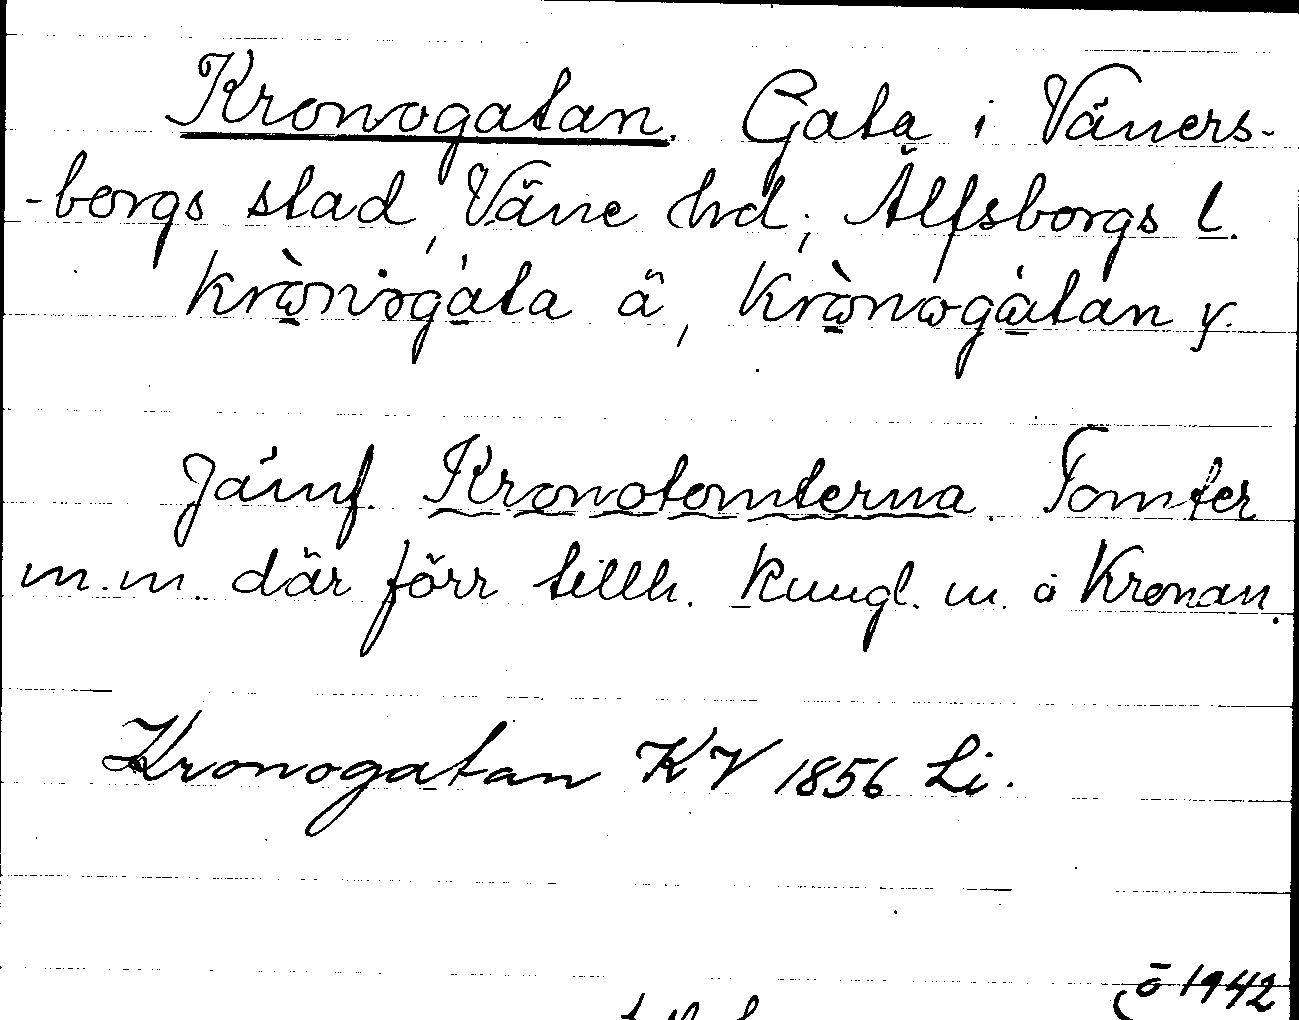 Kronogatan. Gata i Väners-
-borgs stad, Väne hd; Älfsborgs l.
krònogàta ä, krònogàtan y.
Jämf. Kronotomterna. Tomter
m.m. där förr tillh. Kungl. m. o Kronan.
Kronogatan KV 1856 Li.
ō 1942